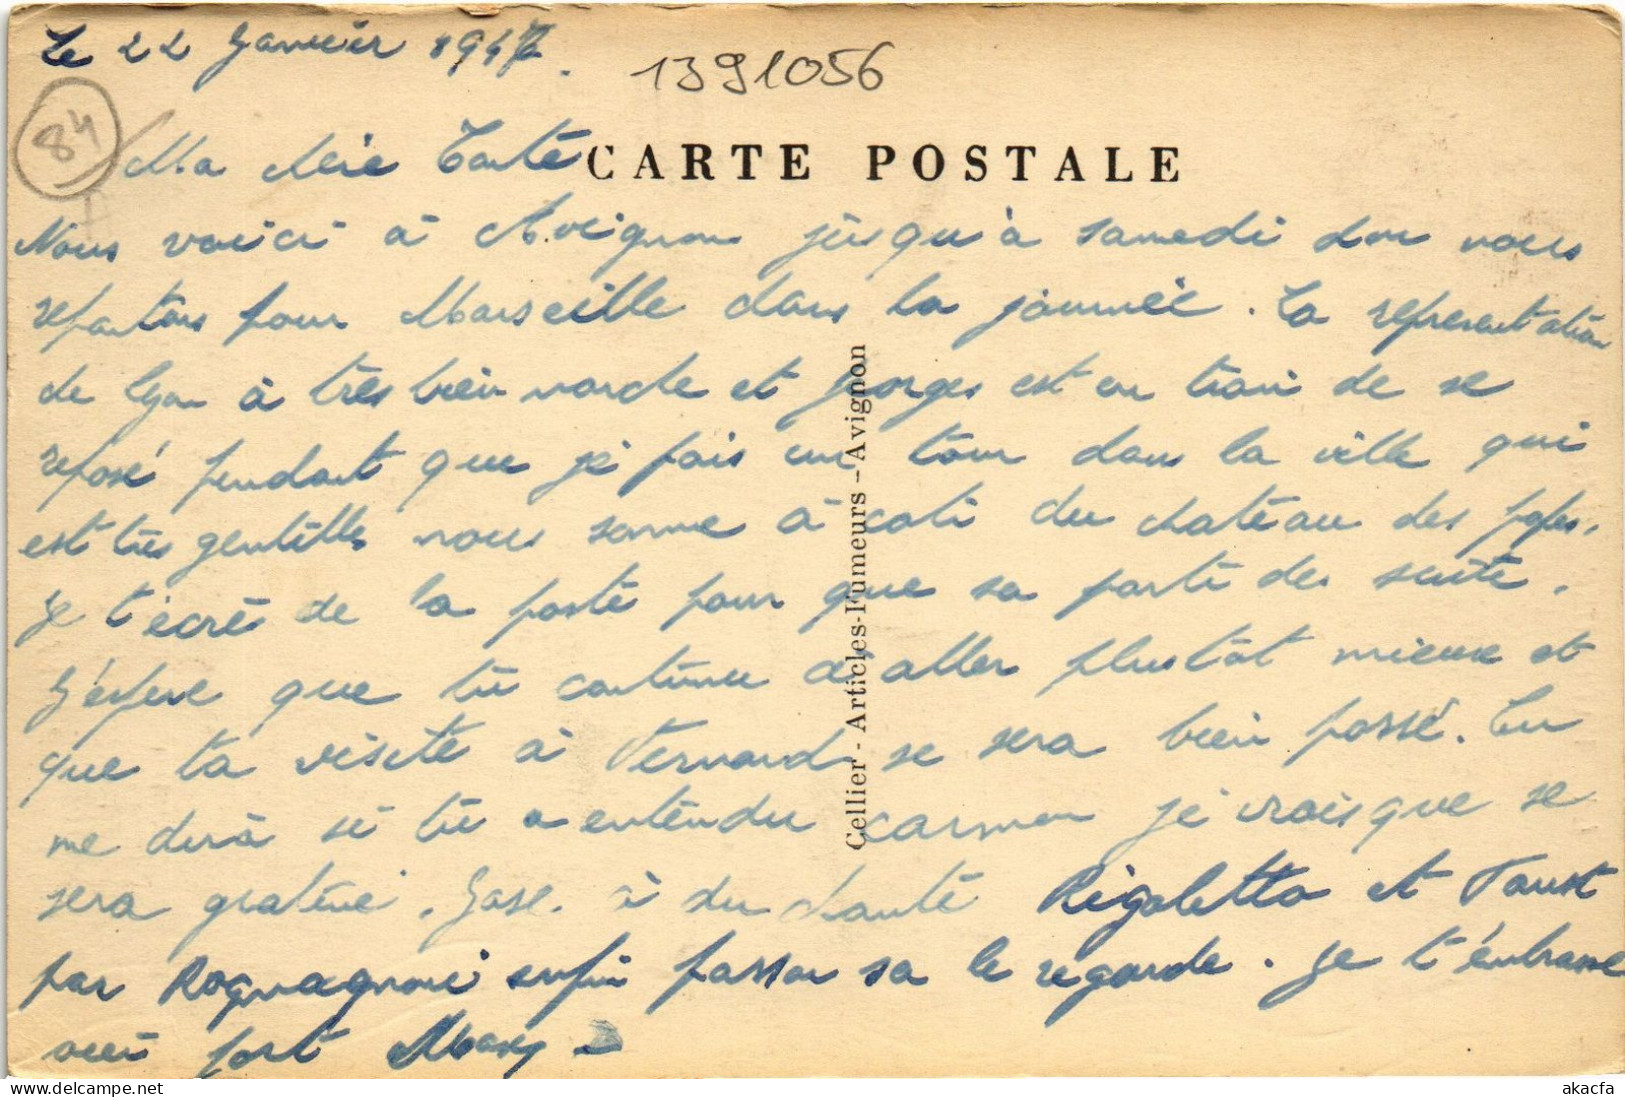 Le 22 Janvier 1947.
1391056
84
Ma chérie Tante
CARTE POSTALE
Nous voici à Avignon jusqu'à samedi don nous
repartons pour Marseille dans la journée. La representation
de Lyon à très bien marche et Jeorges est en train de se
reposé pendant que je fais un tour dans la ville qui
est très gentille nous somme à coté du chateau des papes.
Je t'écrés de la poste pour que sa parte de suite.
J'espere que tu continue à aller plustôt mieux et
que ta visite à Fernand se sera bien passé. Tu
me dira si tu a entendu Carmen je crois que se
sera gratuie. à du chanté Rigoletto et Faust
par enfin passon sa le regarde. Je t'embrasse
bien fort Maxy
Cellier - Articles-Fumeurs - Avignon
akacfa